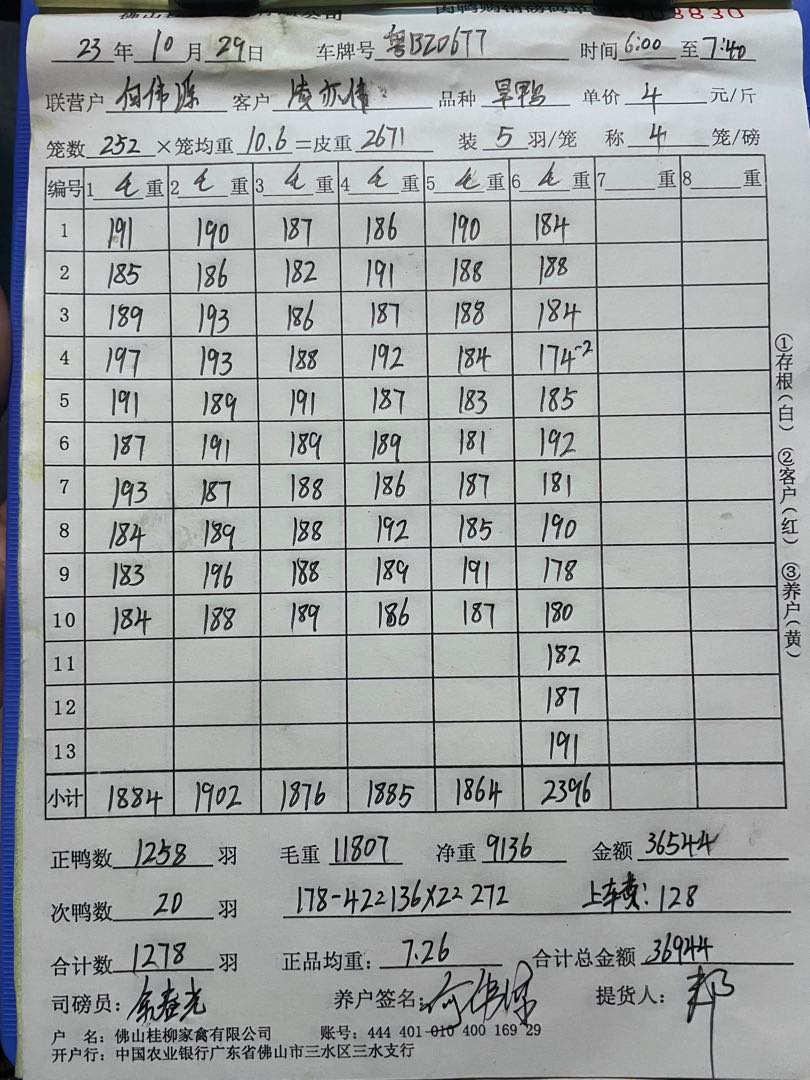 23 年 10 月 29 日 车牌号 粤BZ0677 时间 6:00 至 7:40
联营户 何伟 客户 凌亦伟 品种 旱鸭 单价 4 元/斤
笼数 252 ×笼均重 10.6 =皮重 2671 装 5 羽/笼 称 4 笼/磅
编号 1 毛 重 2 毛 重 3 毛 重 4 毛 重 5 毛 重 6 毛 重 7 重 8 重
1 191 190 187 186 190 184
2 185 186 182 191 188 188
3 189 193 186 187 188 184
4 197 193 188 192 184 174-2
5 191 189 191 187 183 185
6 187 191 189 189 181 192
7 193 187 188 186 187 181
8 184 189 188 192 185 190
9 183 196 188 189 191 178
10 184 188 189 186 187 180
11 182
12 187
13 191
小计 1884 1902 1876 1885 1864 2396
①存根(白) ②客户(红) ③养户(黄)
正鸭数 1258 羽 毛重 11807 净重 9136 金额 36544
次鸭数 20 羽 178-42 2136×2 2 272 上车费: 128
合计数 1278 羽 正品均重: 7.26 合计总金额 36944
司磅员: 养户签名: 提货人: 邦
户 名: 佛山桂柳家禽有限公司 账号: 444 401-010 400 169 29
开户行: 中国农业银行广东省佛山市三水区三水支行